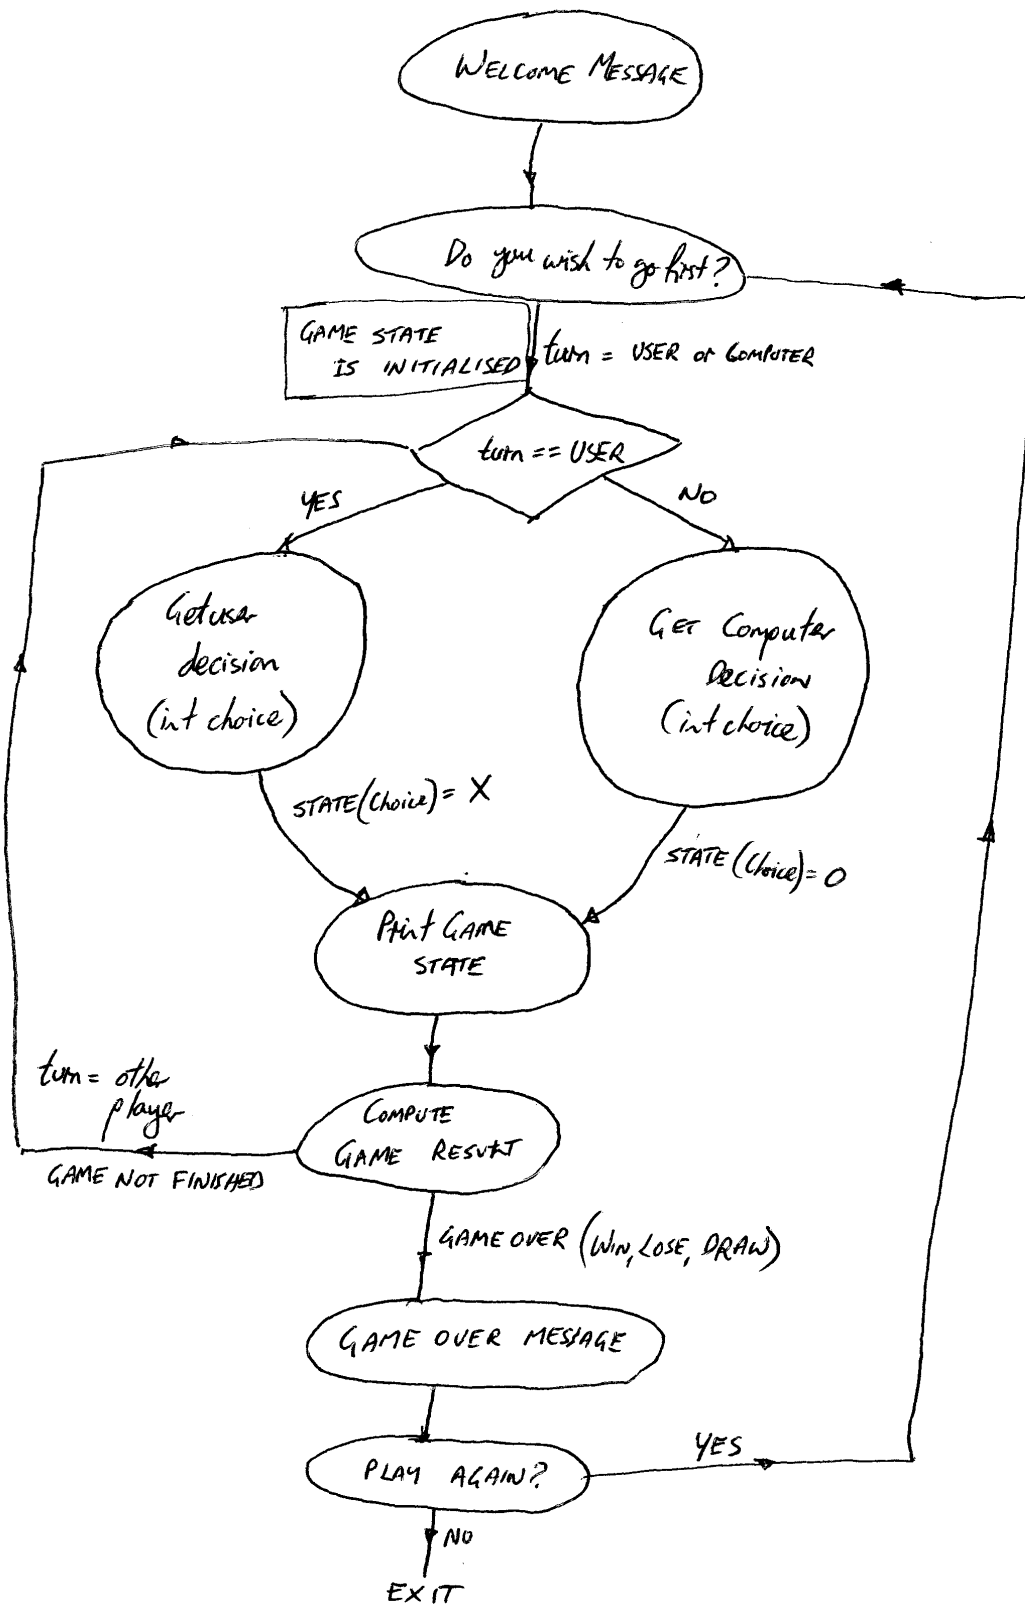 WELCOME MESSAGE
Do you wish to go first?
GAME STATE
IS INITIALISED
turn = USER or COMPUTER
turn == USER
YES
NO
Get user
decision
(int choice)
GET Computer
Decision
(int choice)
STATE(Choice) = X
STATE(Choice) = O
Print GAME
STATE
turn = other
player
COMPUTE
GAME RESULT
GAME NOT FINISHED
GAME OVER (WIN, LOSE, DRAW)
GAME OVER MESSAGE
YES
PLAY AGAIN?
NO
EXIT